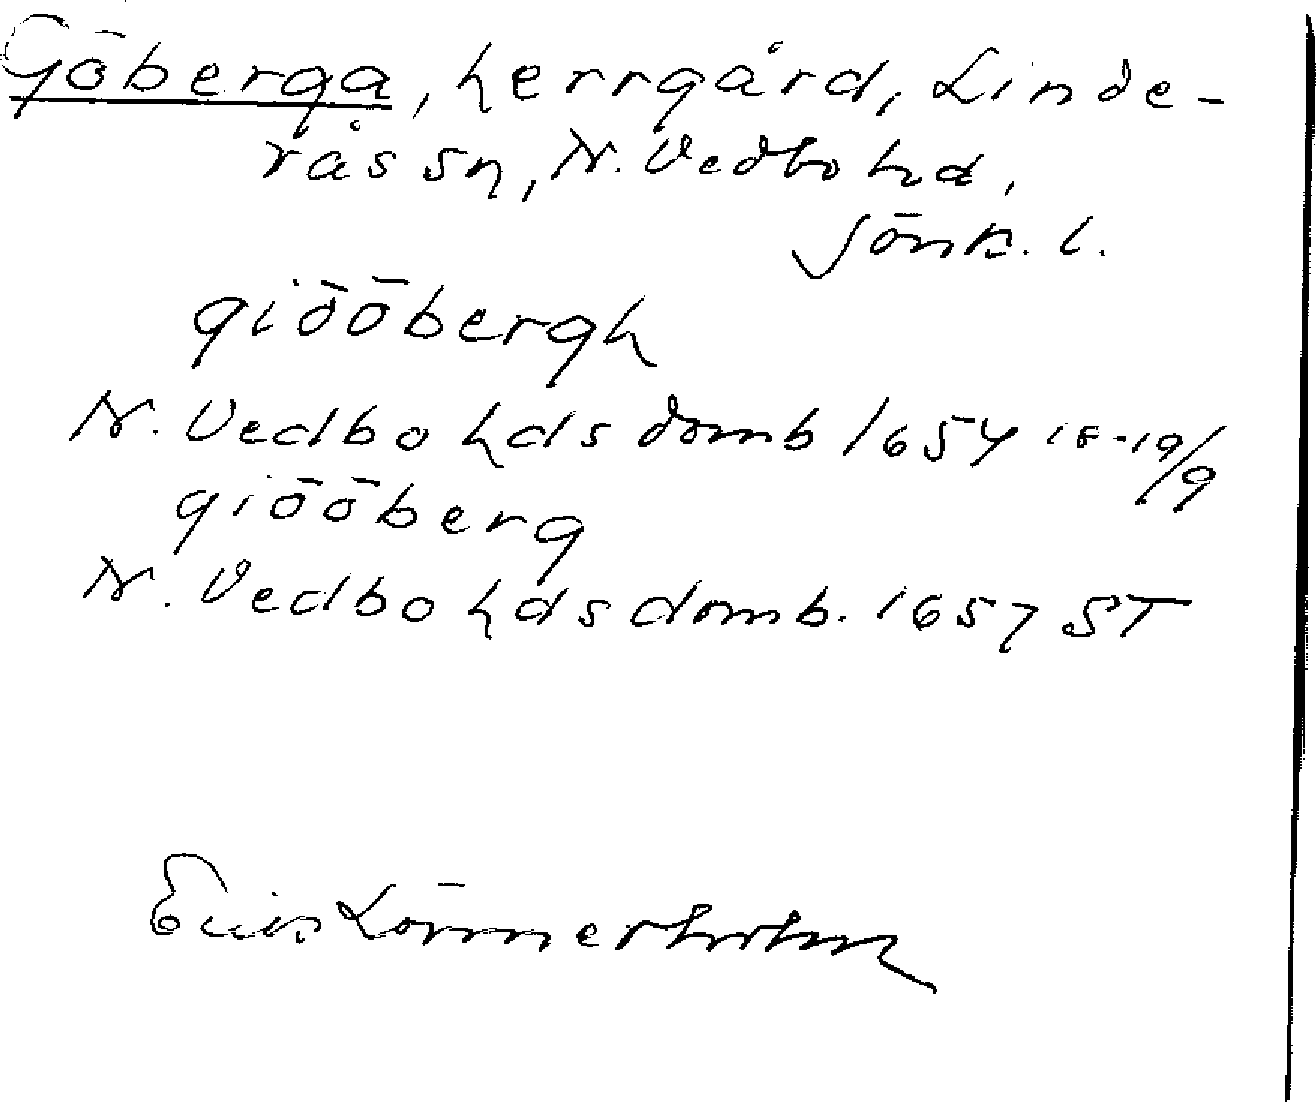 Göberga, herrgård, Linde-
rås sn, N. Vedbo hd,
Jönk. l.
giööbergh
N. Vedbo hds domb 1654 18-19/9
giööberg
N. Vedbo hds domb. 1657 ST
Erik Lönnerholm